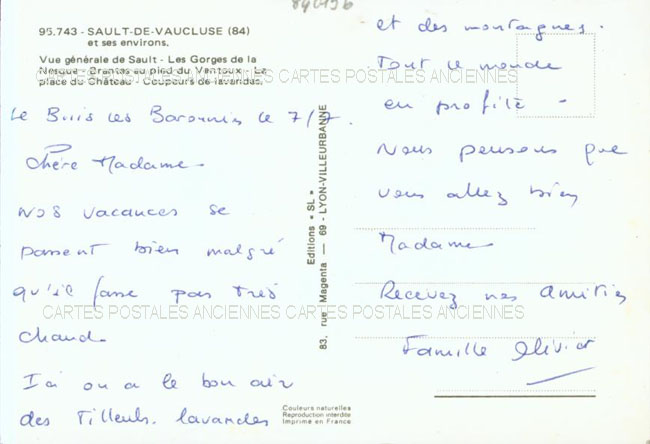 95.743 - SAULT-DE-VAUCLUSE (84)
et ses environs.
Vue générale de Sault - Les Gorges de la
Nesque - Brantes au pied du Ventoux - La
place du Château - Coupeurs de lavandes.
CARTES POSTALES ANCIENNES CARTES POSTALES ANCIENNES
Le Buis les Baronnies le 7/7.
Chère Madame
Nos vacances se
passent bien malgré
qu'il fasse pas très
chaud.
Ici on a le bon air
des Tilleuls. lavandes
et des montagnes.
Tout le monde
en profite
Nous pensons que
vous allez bien
Madame
Recevez nos Amitiés
Famille Olivier
Editions "SL"
83, rue Magenta — 69 - LYON-VILLEURBANNE
CARTES POSTALES ANCIENNES CARTES POSTALES ANCIENNES
Couleurs naturelles
Reproduction interdite
Imprimé en France